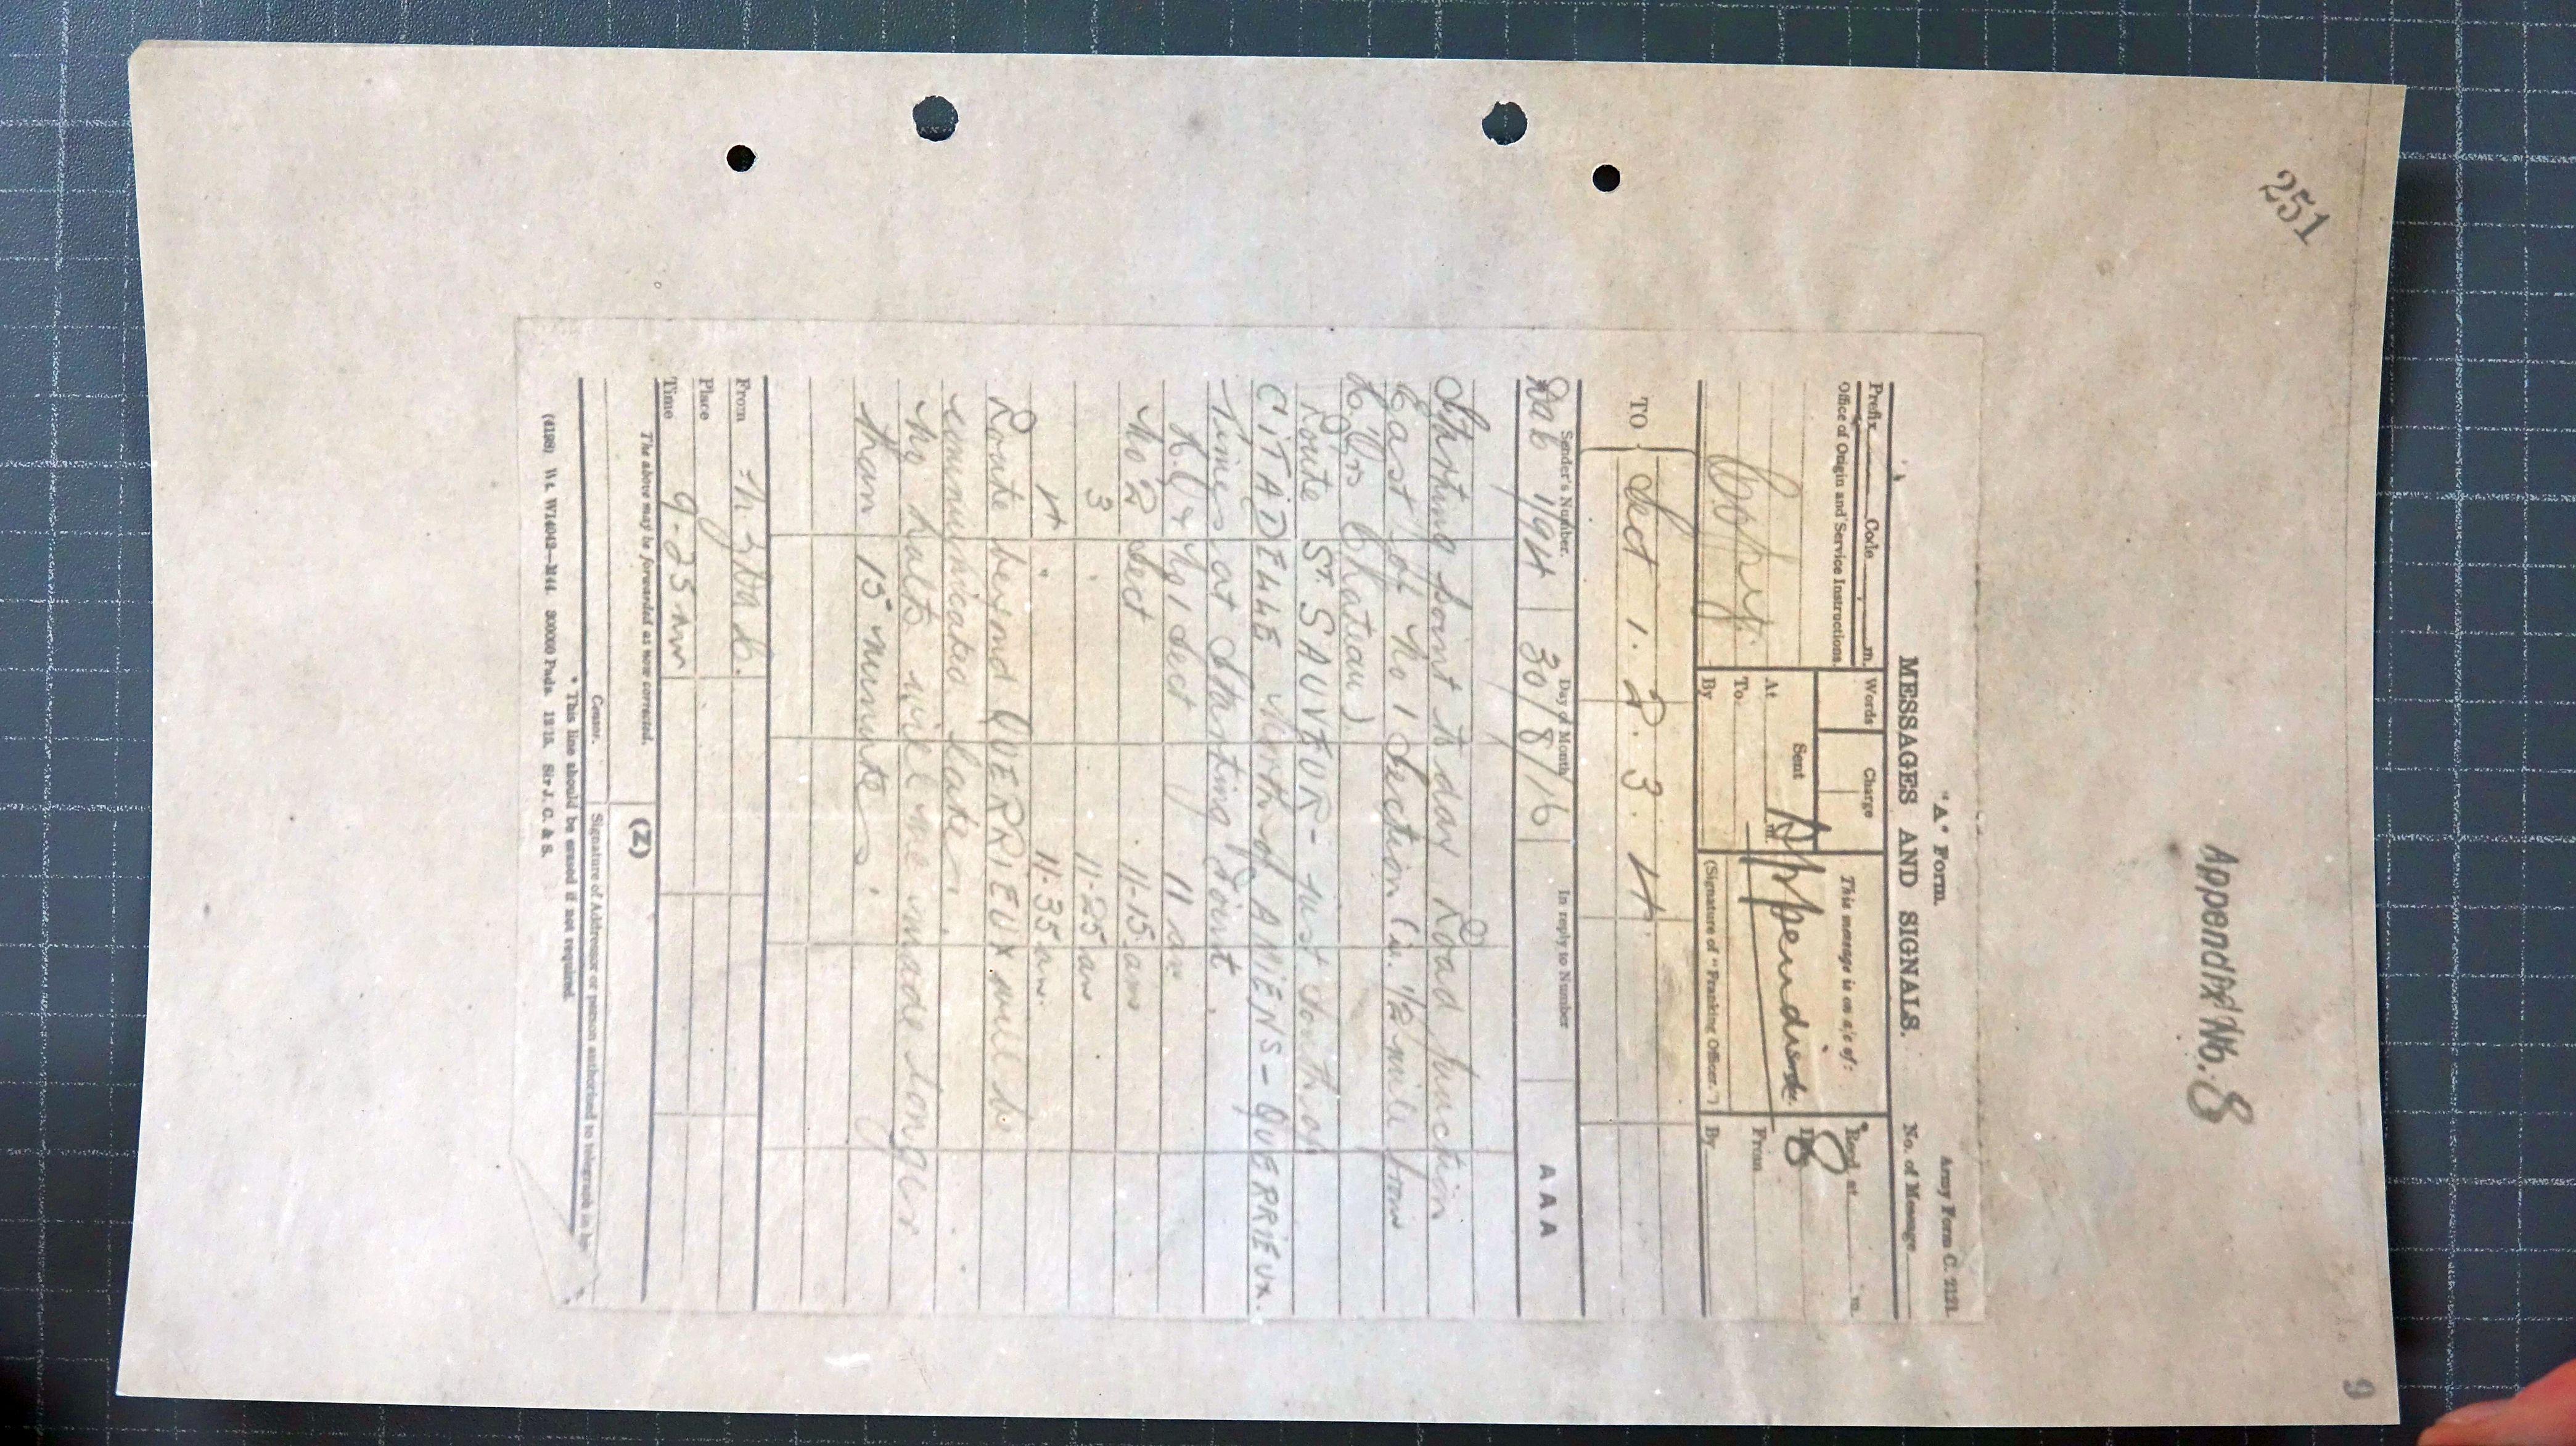 251
9
Appendix No. 8
"A" Form.
Army Form C. 2121.
MESSAGES AND SIGNALS.
No. of Message
Prefix Code m.
Words Charge
This message is on a/c of:
Recd. at m.
Office of Origin and Service Instructions.
Copy.
Sent
At m.
To
By
Appendix
8
(Signature of "Franking Officer.")
From
By
TO
Sect 1. 2. 3. 4.
Sender's Number.
Day of Month
In reply to Number
AAA
1194
30/8/16
Starting point to day Road Junction
East of No 1 Section (ie. 1/2 mile from
H.Qrs Chateau).
Route ST. SAUVEUR - just South of
CITADELLE North of AMIENS - QUERRIEUX.
Times at Starting Point.
H.Q & No 1 Sect 11 am
No 2 Sect . 11-15 am
3 . . 11-25 am
4 . 11-35 am.
Route beyond QUERRIEUX will be
communicated later.
No halts will be made longer
than 15 minutes.
From
Place
Time 9-25 am
The above may be forwarded as now corrected.
(Z)
Censor.
Signature of Addressor or person authorised to telegraph in his
* This line should be erased if not required.
(4198) Wt. W14042—M44. 300000 Pads. 12/15. Sir J. C. & S.